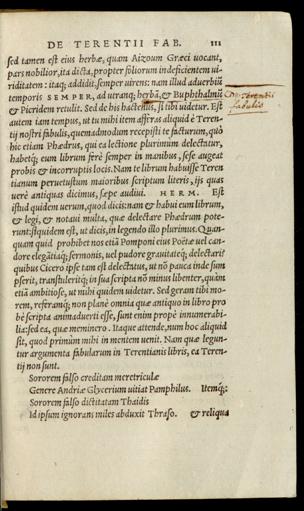 DE TERENTII FAB. 111
sed tamen est eius herbæ, quam Aizoum Græci uocant,
pars nobilior, ita dicta, propter foliorum indeficientem ui-
riditatem: itaq; addidit, semper uirens: nam illud aduerbiũ
temporis SEMPER, ad utranq; herbã, & Buphthalmũ
& Picridem retulit. Sed de his hactenus, si tibi uidetur. Est
De Terentii
fabulis
autem iam tempus, ut tu mihi item afferas aliquid è Teren-
tij nostri fabulis, quemadmodum recepisti te facturum, quò
hic etiam Phædrus, qui ea lectione plurimum delectatur,
habetq; eum librum ferè semper in manibus, sese augeat
probis & incorruptis locis. Nam te librum habuisse Teren
tianum peruetustum maioribus scriptum literis, ijs quas
uerè antiquas dicimus, sæpe audiui. HERM. Est
istud quidem uerum, quod dicis: nam & habui eum librum,
& legi, & notaui multa, quæ delectare Phædrum pote-
runt: siquidem est, ut dicis, in legendo illo plurimus. Quan-
quam quid prohibet nos etiã Pomponi eius Poëtæ uel can-
dore elegãtiaq; sermonis, uel pudore grauitateq; delectari?
quibus Cicero ipse tam est delectatus, ut nõ pauca inde sum
pserit, transtuleritq; in sua scripta nõ minus libenter, quàm
etiã ambitiose, ut mihi quidem uidetur. Sed geram tibi mo-
rem, referamq; non planè omnia quæ antiquo in libro pro
bè scripta animaduerti esse, sunt enim propè innumerabi-
lia: sed ea, quæ memini. Itaque attende, num hoc aliquid
sit, quod primùm mihi in mentem uenit. Nam quæ legun-
tur argumenta fabularum in Terentianis libris, ea Teren-
tij non sunt.
Sororem falso creditam meretriculæ
Genere Andriæ Glycerium uitiat Pamphilus. Itemq;:
Sororem falso dictitatam Thaidis
Id ipsum ignorans miles abduxit Thraso. & reliqua